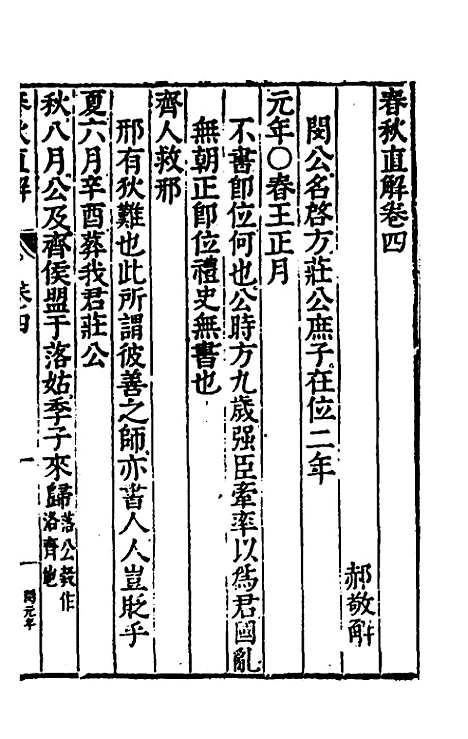 春秋直解卷四
郝敬解
閔公名啓方莊公庶子在位二年
元年〇春王正月
不書即位何也公時方九歲强臣牽率以爲君國亂
無朝正即位禮史無書也
齊人救邢
邢有狄難也此所謂彼善之師亦書人人豈貶乎
夏六月辛酉葬我君莊公
秋八月公及齊侯盟于落姑季子來歸落公穀作洛齊地
春秋直解 卷四 一 閔元年